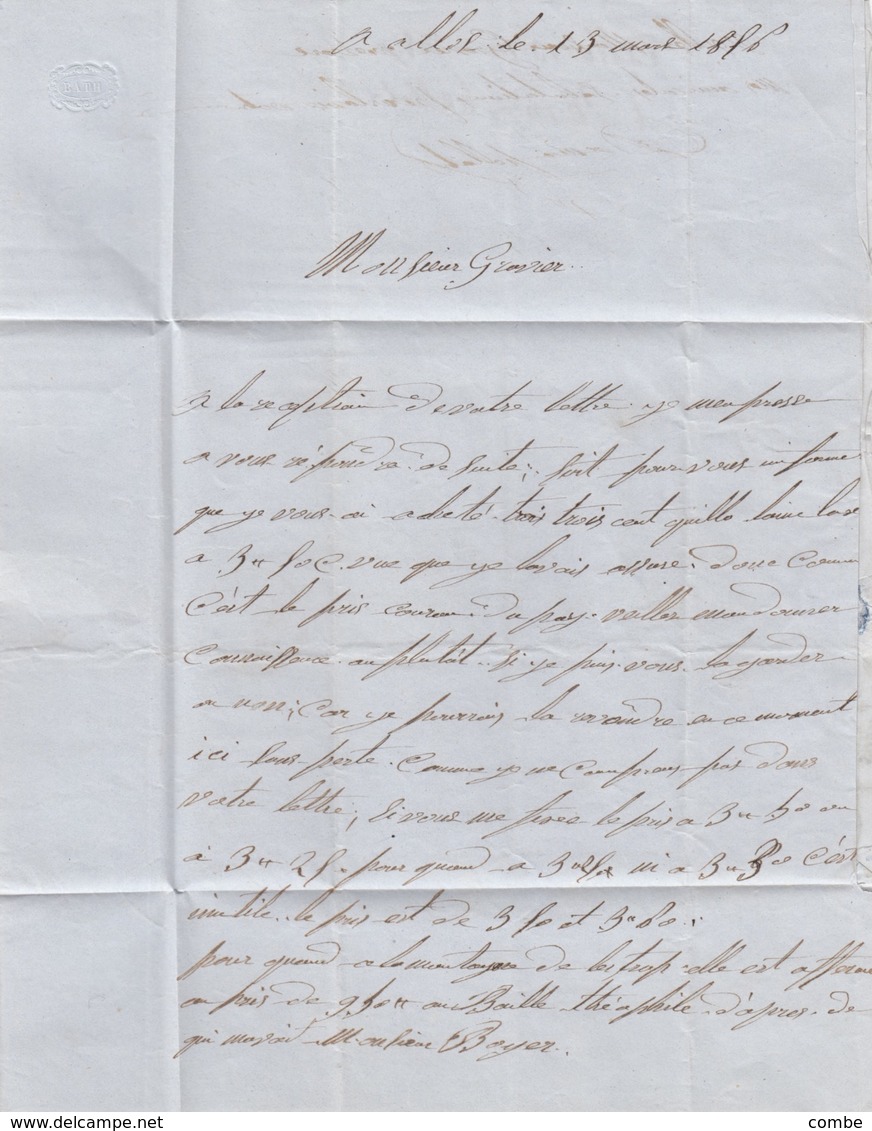 BATH
a allos le 13 mars 1856
Monsieur Gravier
a la reseption de votre lettre je men presse
a vous répondre de suite; soit pour vous informe
que je vous ai acheté trois trois cent quillo laine lave
a 3" 50 c vue que je lavais assure. donc comme
c'ést le pris couran du pays veilles man donner
connaissance au plutôt si je puis vous la garder
ou non; car je pourrais la vendre en ce moment
ici sans perte. comme je ne comprens pas dans
votre lettre; si vous me fixe le pris a 3" 50 ou
à 3" 25. pour quand a 3" ni a 3" c'ést
inutile. le pris est de 3 50 et 3" 60.
pour quand a la montagne de elle est afferme
au pris de 950" au Baille théophile d'apres de
qui mavait Monsieur Boyer.
delcampe.net
combe